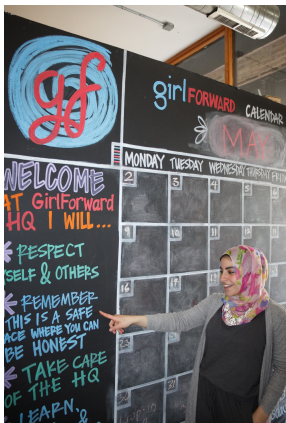 gf
girl FORWARD CALENDAR
MAY
MONDAY TUESDAY WEDNESDAY THURSDAY FRIDAY
2 3 4 5
9 10 11
16
23
WELCOME
AT GirlForward
HQ I WILL...
RESPECT
MYSELF & OTHERS
REMEMBER
THIS IS A SAFE
PLACE WHERE YOU CAN
BE HONEST
TAKE CARE
OF THE HQ
LEARN,
&